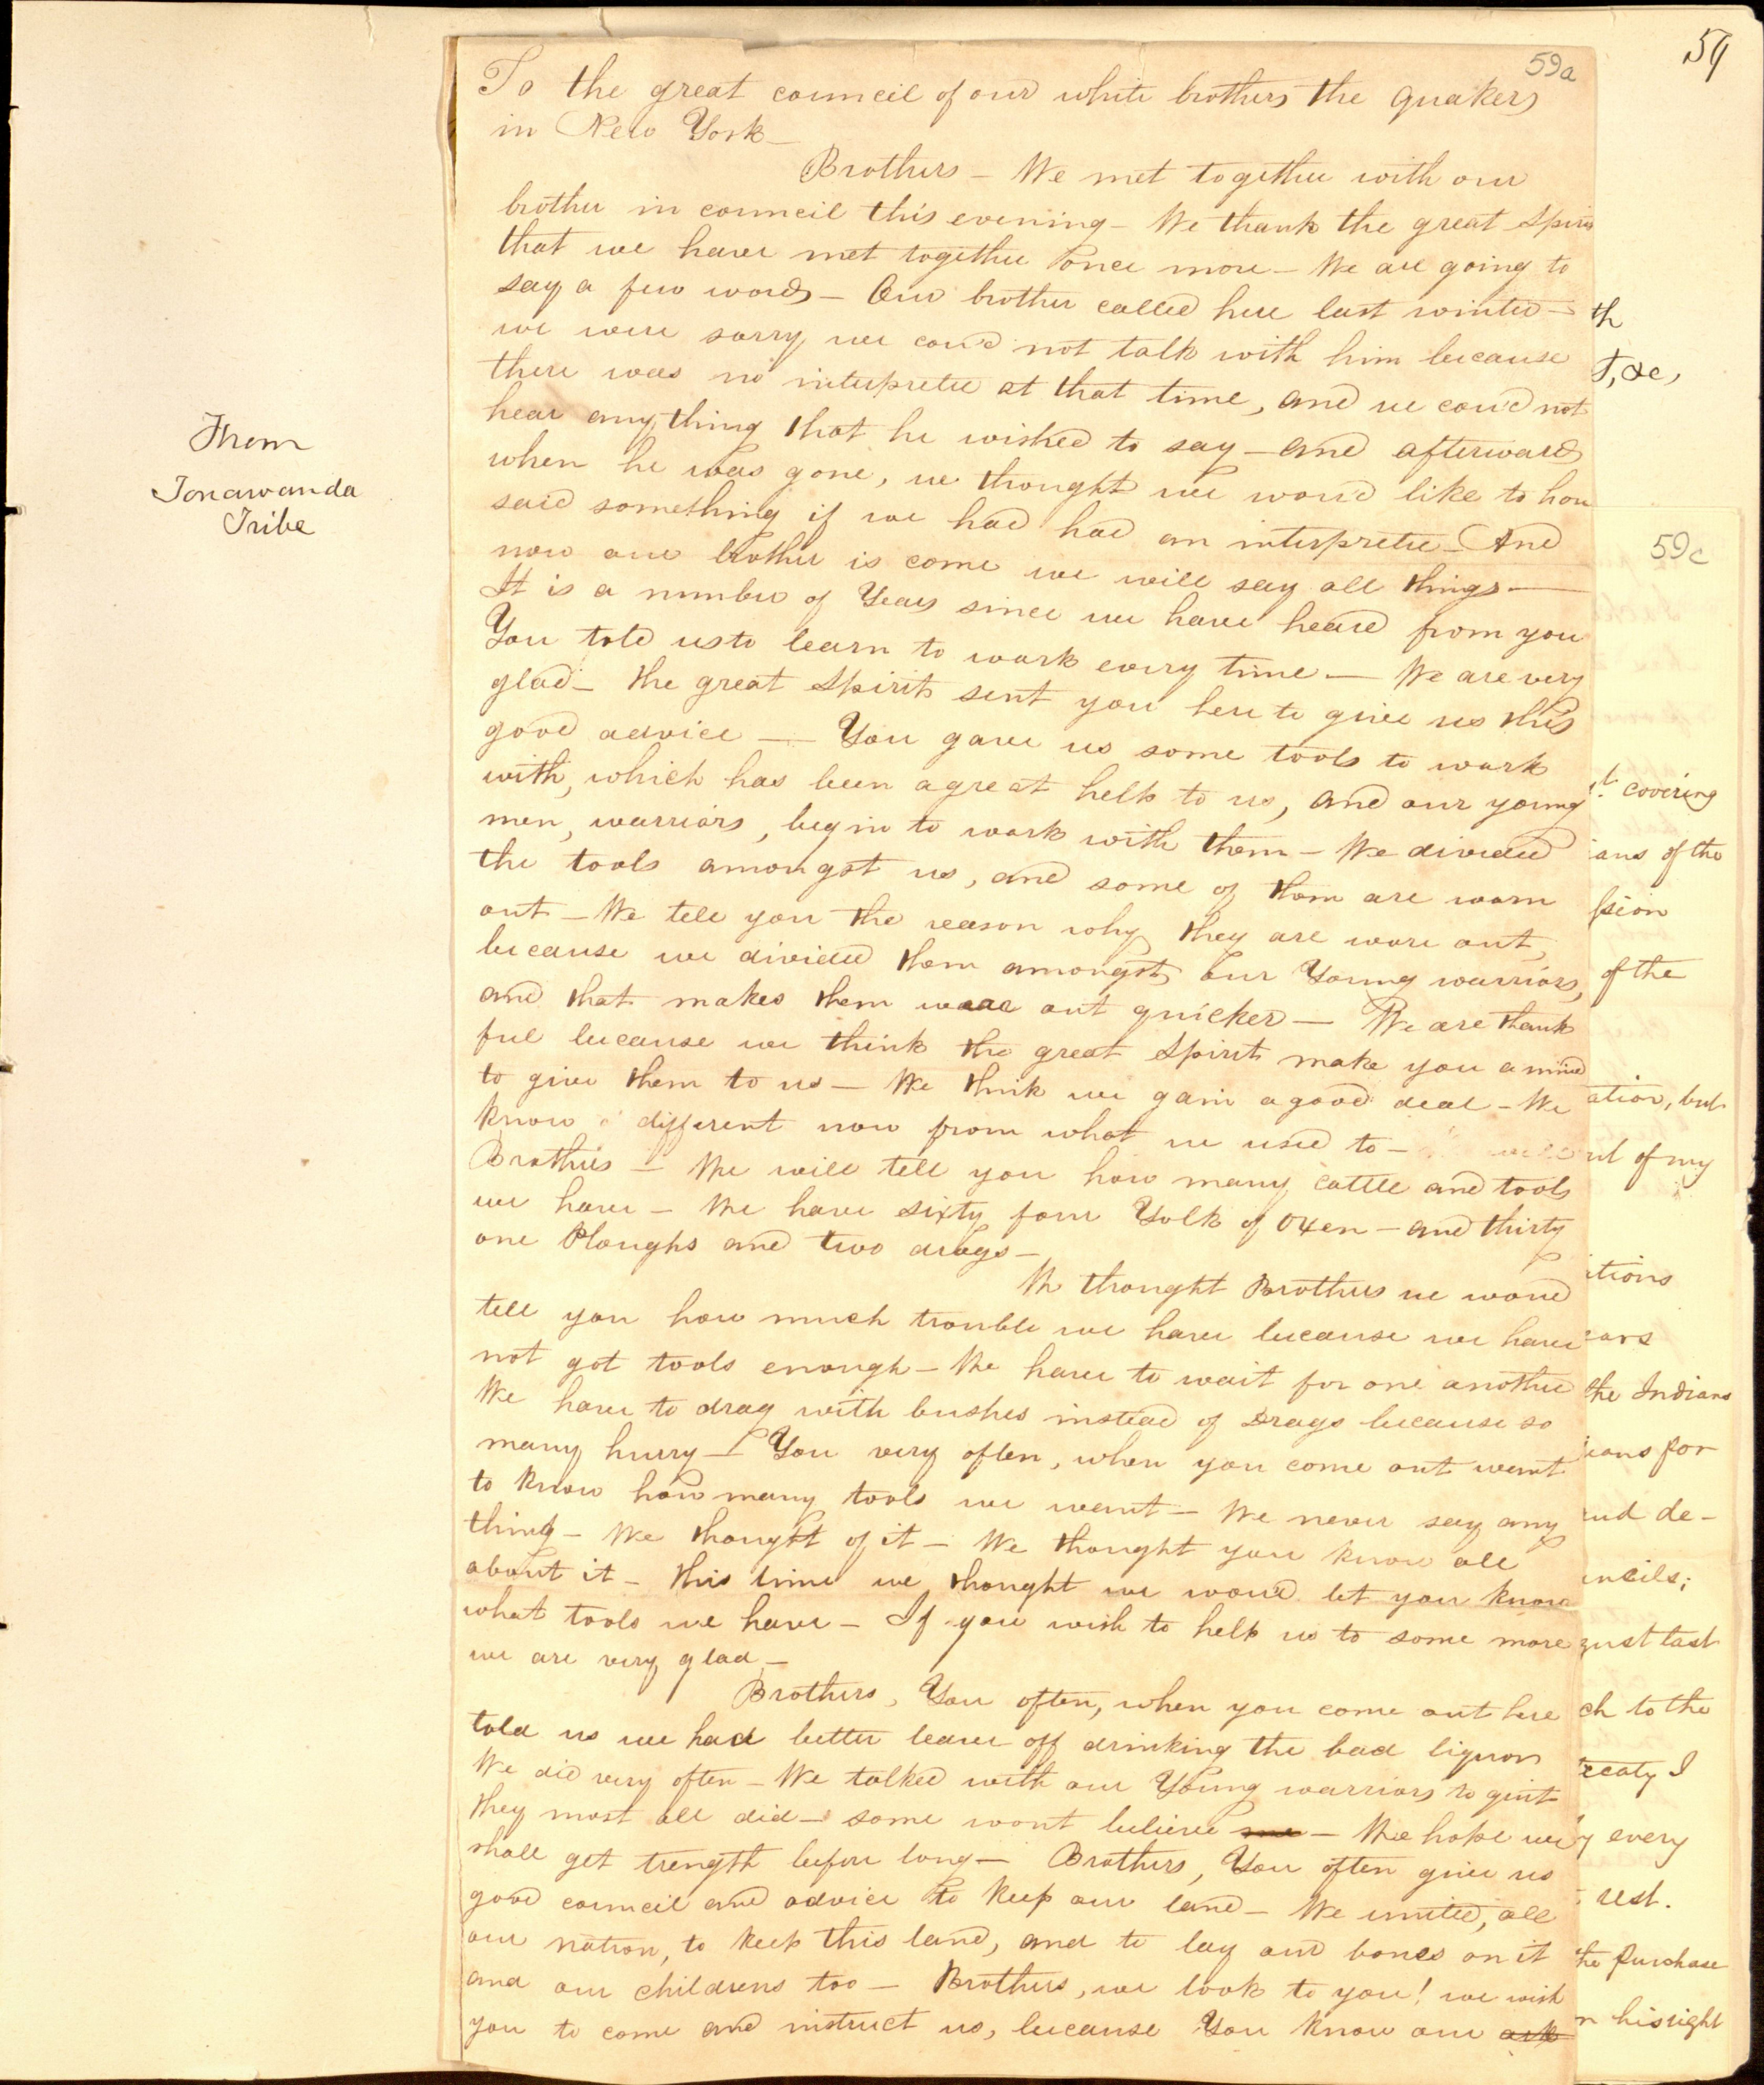 59
59a
To the great council of our white brothers the Quakers
in New York—
Brothers — We met together with our
brother in council this evening — We thank the great Spirit
that we have met together once more — We are going to
say a few words — Our brother called here last winter —
we were sorry we cou'd not talk with him because
there was no interpreter at that time, and we cou'd not
hear any thing that he wished to say — and afterwards
when he was gone, we thought we wou'd like to have
said something if we had had an interpreter — And
now our brother is come we will say all things —
It is a number of Years since we have heard from you
You told us to learn to work every time — We are very
glad — the great Spirit sent you here to give us this
good advice — You gave us some tools to work
with, which has been a great help to us, and our young
men, warriors, begin to work with them — We divided
the tools amongst us, and some of them are worn
out — We tell you the reason why they are wore out,
because we divided them amongst our Young warriors,
and that makes them weare out quicker — We are thank
ful because we think the great Spirit make you a mind
to give them to us — We think we gain a good deal — We
know different now from what we used to —
Brothers — We will tell you how many cattle and tools
we have — We have sixty four Yolk of Oxen — and thirty
one Ploughs and two drags —
We thought Brothers we woued
tell you how much trouble we have because we have
not got tools enough — We have to wait for one another
We have to drag with bushes instead of Drags because so
many hurry — You very often, when you come out want
to know how many tools we want — We never say any
thing — We thought of it — We thought you know all
about it — this time we thought we wou'd let you know
what tools we have — If you wish to help us to some more
we are very glad —
Brothers, You often, when you come out here
told us we had better leave off drinking the bad liquors
We did very often — We talked with our Young warriors to quit
they most all did — some wont believe me — We hope we
shall get trength before long — Brothers, You often give us
good council and advice to keep our land — We united, all
our nation, to keep this land, and to lay our bones on it
and our childrens too — Brothers, we look to you! we wish
you to come and instruct us, because You know our ask
From
Tonawanda
Tribe
th
T, &c,
59c
t. covering
ians of the
ssion
of the
ation, but
nt of my
itions
ears
the Indians
ians for
and de-
uncils;
gust last
ch to the
reaty I
y every
rest.
the purchase
n his right